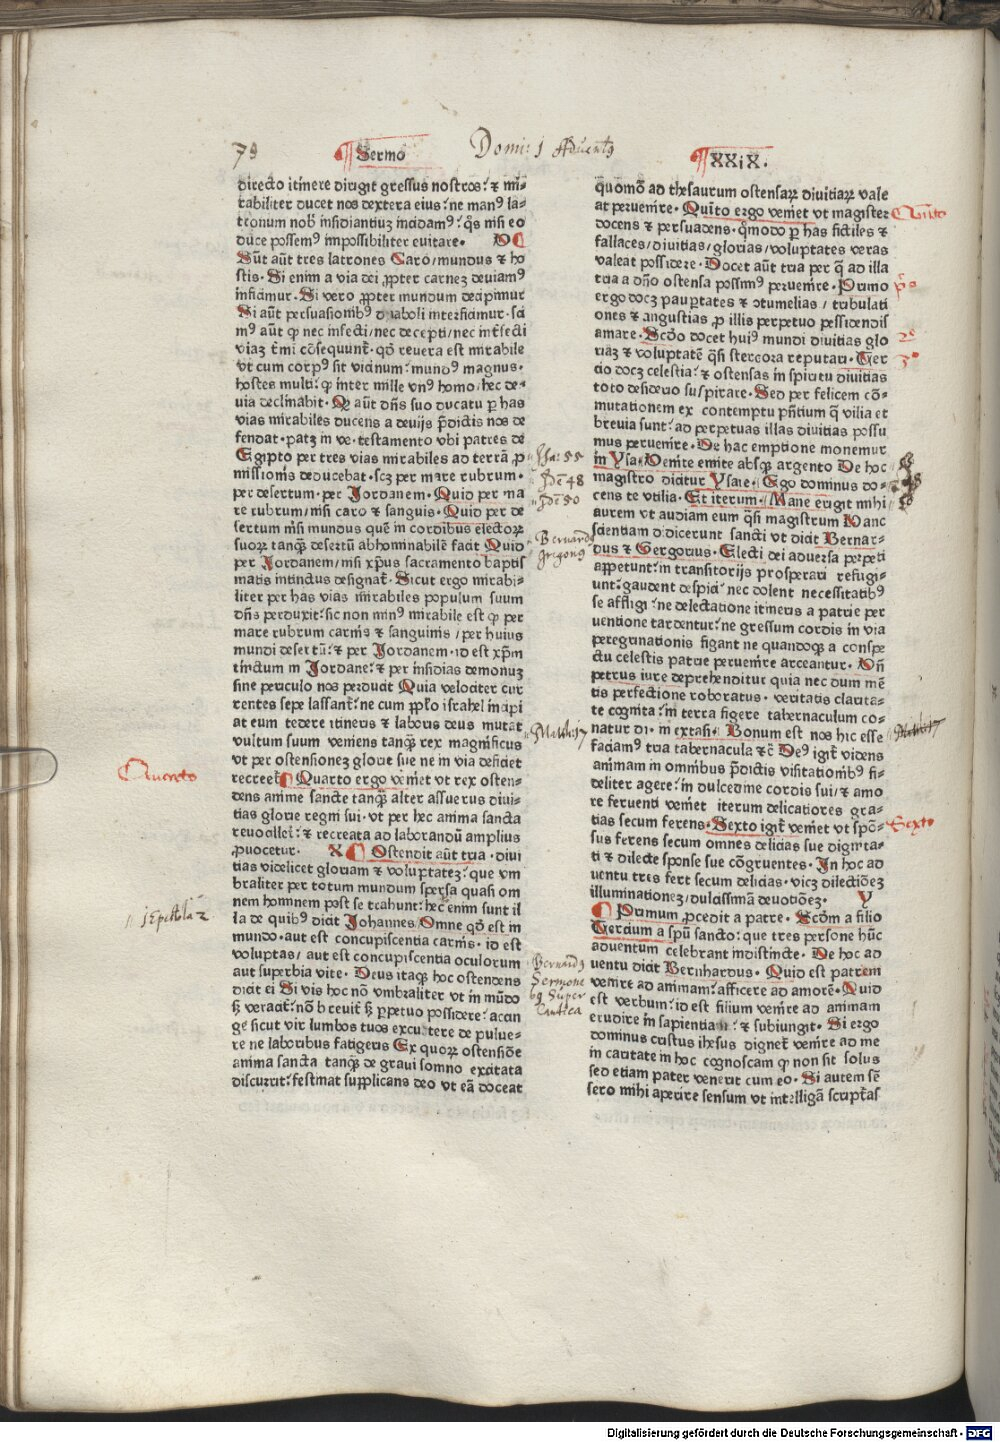 79 Sermo Domi: j Aduentꝰ XXiX.
directo itinere dirigit gressus nostros: ⁊ mi-
rabiliter ducet nos dextera eius: ne manꝰ la-
tronum nob̄ insidiantiuꝫ incidamꝰ: q̄s nisi eo
duce possemꝰ impossibiliter euitare.
Sūt aūt tres latrones Caro/mundus ⁊ ho
stis. Si enim a via dei ꝓpter carneꝫ deuiamꝰ
inficimur. Si vero ꝓpter mundum decipimur
Si aūt persuasionibꝰ diaboli interficimur. si
mꝰ aūt ꝙ nec infecti/nec decepti/nec int̄fecti
viaꝫ t̄mi cōsequunt᷑. qd̄ reuera est mirabile
vt cum corpꝰ sit vicinum: mundꝰ magnus.
hostes multi: ꝙ inter mille vnꝰ homo/hec de-
uia declinabit. Qꝫ aūt dn̄s suo ducatu ꝑ has
vias mirabiles ducens a deuijs p̄dictis nos de
fendat. patꝫ in ve. testamento vbi patres de
Egipto per tres vias mirabiles ad terrā ꝓ
missionis deducebat. scꝫ per mare rubrum.
per desertum. per Iordanem. Quid per ma
re rubrum/nisi caro ⁊ sanguis. Quid per de
sertum nisi mundus quē in cordibus electoꝝ
suoꝝ tanqꝫ desertū abhominabile facit Quid
per Iordanem/nisi xp̄us sacramento baptis
matis intinctus designat᷑. Sicut ergo mirabi-
liter per has vias mirabiles populum suum
dn̄s perduxit: sic non minꝰ mirabile est ꝙ per
mare rubrum carnis ⁊ sanguinis/per huius
mundi desertū: ⁊ per Iordanem. id est xp̄m
tinctum in Iordane: ⁊ per insidias demonuꝫ
sine periculo nos perducit Quia velociter cur
rentes sepe lassant᷑: ne cum ꝓp̄lo israhel incipi
at eum tedere itineris ⁊ laboris deus mutat
vultum suum veniens tanqꝫ rex magnificus
vt per ostensioneꝫ glorie sue ne in via deficiet
Quarto
recreet᷑ Quarto ergo veniet vt rex osten-
dens anime sancte tanqꝫ alter assuerus diui-
tias glorie regni sui. vt per hec anima sancta
reuocillet᷑: ⁊ recreata ad laborandū amplius
ꝓuocetur. X Ostendit aūt tria. diui
tias videlicet gloriam ⁊ voluptateꝫ: que vm
braliter per totum mundum sꝑsa quasi om
nem hominem post se trahunt: hec enim sunt il
j Epistola 2
la de quibꝰ dicit Johannes/Omne qd̄ est in
mundo. aut est concupiscentia carnis. id est
voluptas/ aut est concupiscentia oculorum
aut superbia vite. Deus itaqꝫ hoc ostendens
dicit ei Si vis hoc nō vmbraliter vt in mūdo
sꝫ veracit᷑: nō breuit᷑ sꝫ ꝑpetuo possidere: accin
ge sicut vir lumbos tuos excutere de puluer-
re ne laboribus fatigeris Ex quoꝝ ostensiōe
anima sancta tanqꝫ de graui somno excitata
discurrit: festinat supplicans deo vt eā doceat
quomō ad thesaurum ostensaꝝ diuitiaꝝ vale
at peruenire. Quīto ergo veniet vt magister
Quīto
docens ⁊ persuadens. qm̄odo ꝑ has fictiles ⁊
fallaces/diuitias/glorias/voluptates veras
valeat possidere. Docet aūt tria per q̄ ad illa
tria a dn̄o ostensa possimꝰ peruenire. Primo
pº
ergo docꝫ paupertates ⁊ ↄtumelias/ tribulati
ones ⁊ angustias ꝓ illis perpetuo possidendis
amare. Scd̄o docet huiꝰ mundi diuitias glo
2º
riaꝫ ⁊ voluptatē q̄si stercora reputari. Ter
3º
cio docꝫ celestia: ⁊ ostensas in spiritu diuitias
toto desiderio suspirare. Sed per felicem cō-
mutationem ex contemptu p̄ntium q̄ vilia et
breuia sunt: ad perpetuas illas diuitias possu
mus peruenire. De hac emptione monemur
Isa: 55
in Ysa. Venite emite absqꝫ argento De hoc
Idē 48
magistro dicitur Ysaie. Ego dominus do-
Idē 50
cens te vtilia. Et iterum. Mane erigit mihi
aurem vt audiam eum q̄si magistrum Hanc
scientiam didicerunt sancti vt dicit Bernar-
Bernardꝰ
Gregoriꝰ
dus ⁊ Gregorius. Electi dei aduersa perpeti
appetunt: in transitorijs prosperari refugi-
unt: gaudent despici: nec dolent necessitatibꝰ
se affligi: ne delectatione itineris a patrie per
uentione tardentur: ne gressum cordis in via
peregrinationis figant ne quandoqꝫ a conspe
ctu celestis patrie peruenire arceantur. Vn̄
petrus iure deprehenditur quia nec dum mē
tis perfectione roboratus. veritatis clarita-
te cognita: in terra figere tabernaculum co-
Mathei 17
natur di. in extasi. Bonum est nos hic esse
faciamꝰ tria tabernacula ⁊c̄ Deꝰ igit᷑ videns
animam in omnibus p̄dictis visitationibꝰ fi-
deliter agere: in dulcedine cordis sui/⁊ amo
re feruenti veniet iterum delicatiores gra-
tias secum ferens. Sexto igit᷑ veniet vt spō-
Sexto
sus ferens secum omnes delicias sue dignita-
ti ⁊ dilecte sponse sue cōgruentes. In hoc ad
uentu tres fert secum delicias. vicꝫ dilectiōeꝫ
illuminationeꝫ/dulcissimā deuotiōeꝫ. Y
Primum ꝓcedit a patre. Scd̄m a filio
Tercium a spū sancto: que tres persone hūc
aduentum celebrant indistincte. De hoc ad
Bernardꝰ
Sermone
69 Super
Cantica
uentu dicit Bernhardus. Quid est patrem
venire ad animam: afficere ad amorē. Quid
est verbum: id est filium venire ad animam
erudire in sapientiam: ⁊ subiungit. Si ergo
dominus custus ihesus dignet᷑ venire ad me
in caritate in hoc cognoscam ꝙ non sit solus
sed etiam pater venerit cum eo. Si autem sē
sero mihi aperire sensum vt intelligā script᷑as
Digitalisierung gefördert durch die Deutsche Forschungsgemeinschaft - DFG